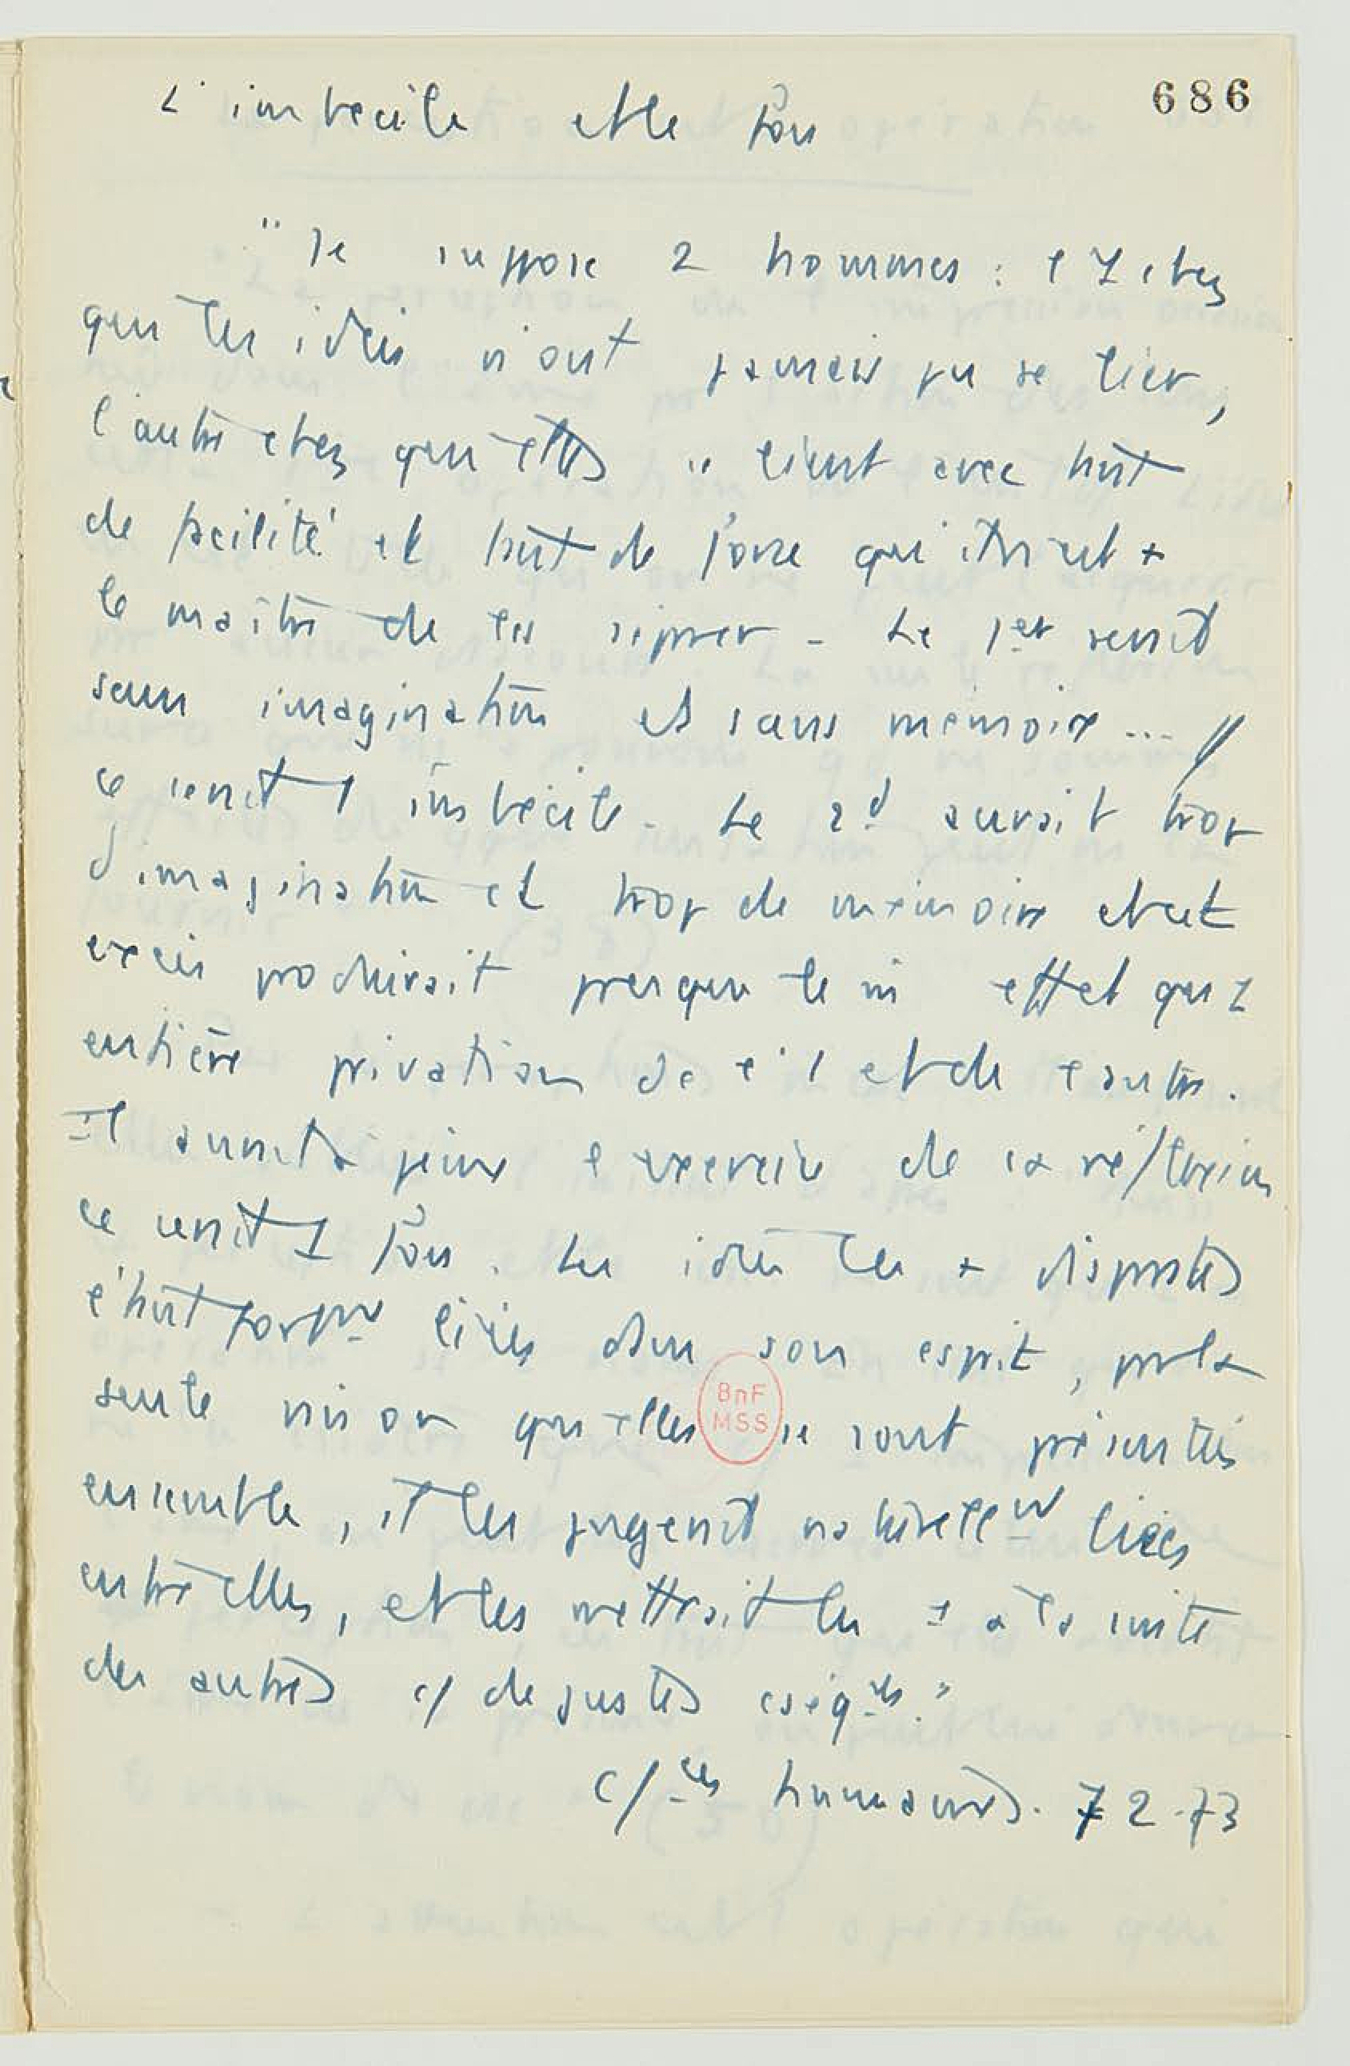 686
L'imbécile et le fou
"Je suppose 2 hommes : l'1 chez
qui les idées n'ont jamais pu se lier,
l'autre chez qui elles se lient avec tut
de facilité et tut de force qu'il n'est +
le maître de les séparer - Le 1er serait
sans imagination et sans mémoire... //
ce serait 1 imbécile. Le 2d aurait trop
d'imagination et trop de mémoire et cet
excès produirait presque le m̂ effet qu'1
entière privation de l'1 et de l'autre.
Il aurait à peine l'exercice de la réflexion
ce serait 1 fou. Les idées les + disparates
étant fortmt liées dans son esprit, par la
seule raison qu'elles se sont présentées
ensemble, il les jugerait naturellemt liées
entre elles, et les mettrait les 1 à la suite
des autres c/ de justes cséqces."
C/ces humaines. 72-73
BnF
MSS